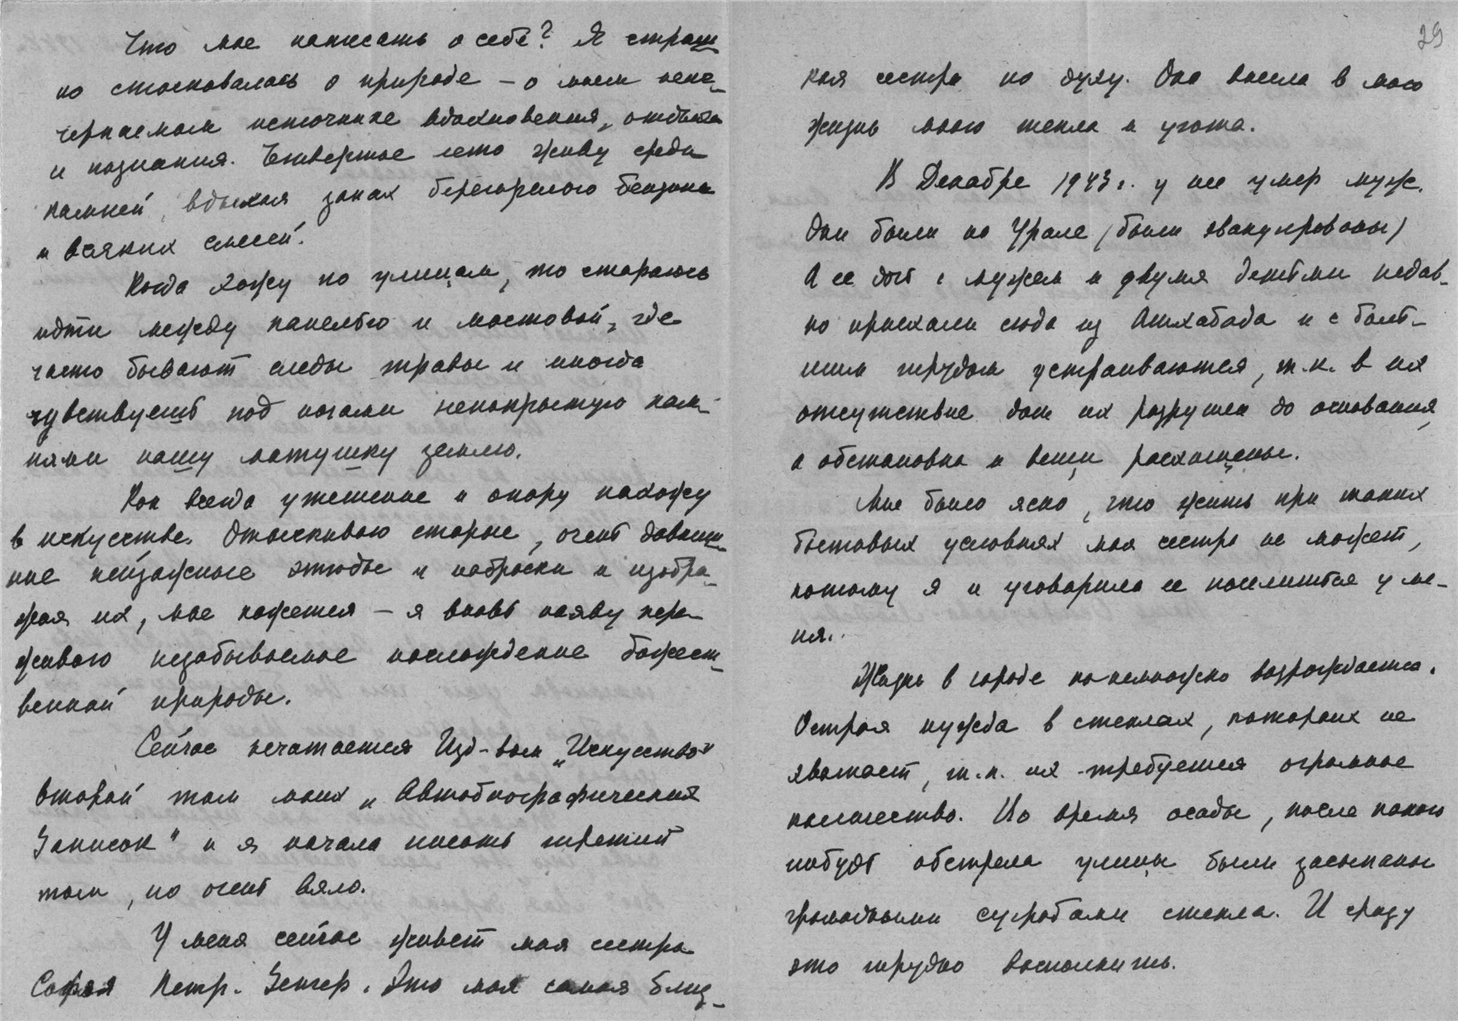 Что мне написать о себе? Я страш-
но стосковалась о природе – о моем неис-
черпаемом источнике вдохновения, отдыха
и познания. Четвертое лето живу среди
камней, вдыхая запах перегорелого бензина
и всяких смесей.
Когда хожу по улицам, то стараюсь
идти между панелью и мостовой, где
часто бывают следы травы и иногда
чувствуешь под ногами непокрытую кам-
нями нашу матушку землю.
Как всегда утешение и опору нахожу
в искусстве. Отыскиваю старые, очень давниш-
ние пейзажные этюды и наброски и изобра-
жая их, мне кажется – я вновь наяву пере-
живаю незабываемое наслаждение божест-
венной природы.
Сейчас печатается Изд-вом „Искусство"
второй том моих „Автобиографических
Записок" и я начала писать третий
том, но очень вяло.
У меня сейчас живет моя сестра
Софья Петр. Зенгер. Это моя самая близ-
29
кая сестра по духу. Она внесла в мою
жизнь много тепла и уюта.
В Декабре 1943 г. у нее умер муж.
Они были на Урале (были эвакуированы)
А ее дочь с мужем и двумя детьми недав-
но приехали сюда из Ашхабада и с боль-
шим трудом устраиваются, т.к. в их
отсутствие дом их разрушен до основания,
а обстановка и вещи расхищены.
Мне было ясно, что жить при таких
бытовых условиях моя сестра не может,
потому я и уговорила ее поселиться у ме-
ня.
Жизнь в городе понемножко возрождается.
Острая нужда в стеклах, которых не
хватает, т.к. их требуется огромное
количество. Во время осады, после какого
нибудь обстрела улицы были засыпаны
громадными сугробами стекла. И сразу
это трудно восполнить.